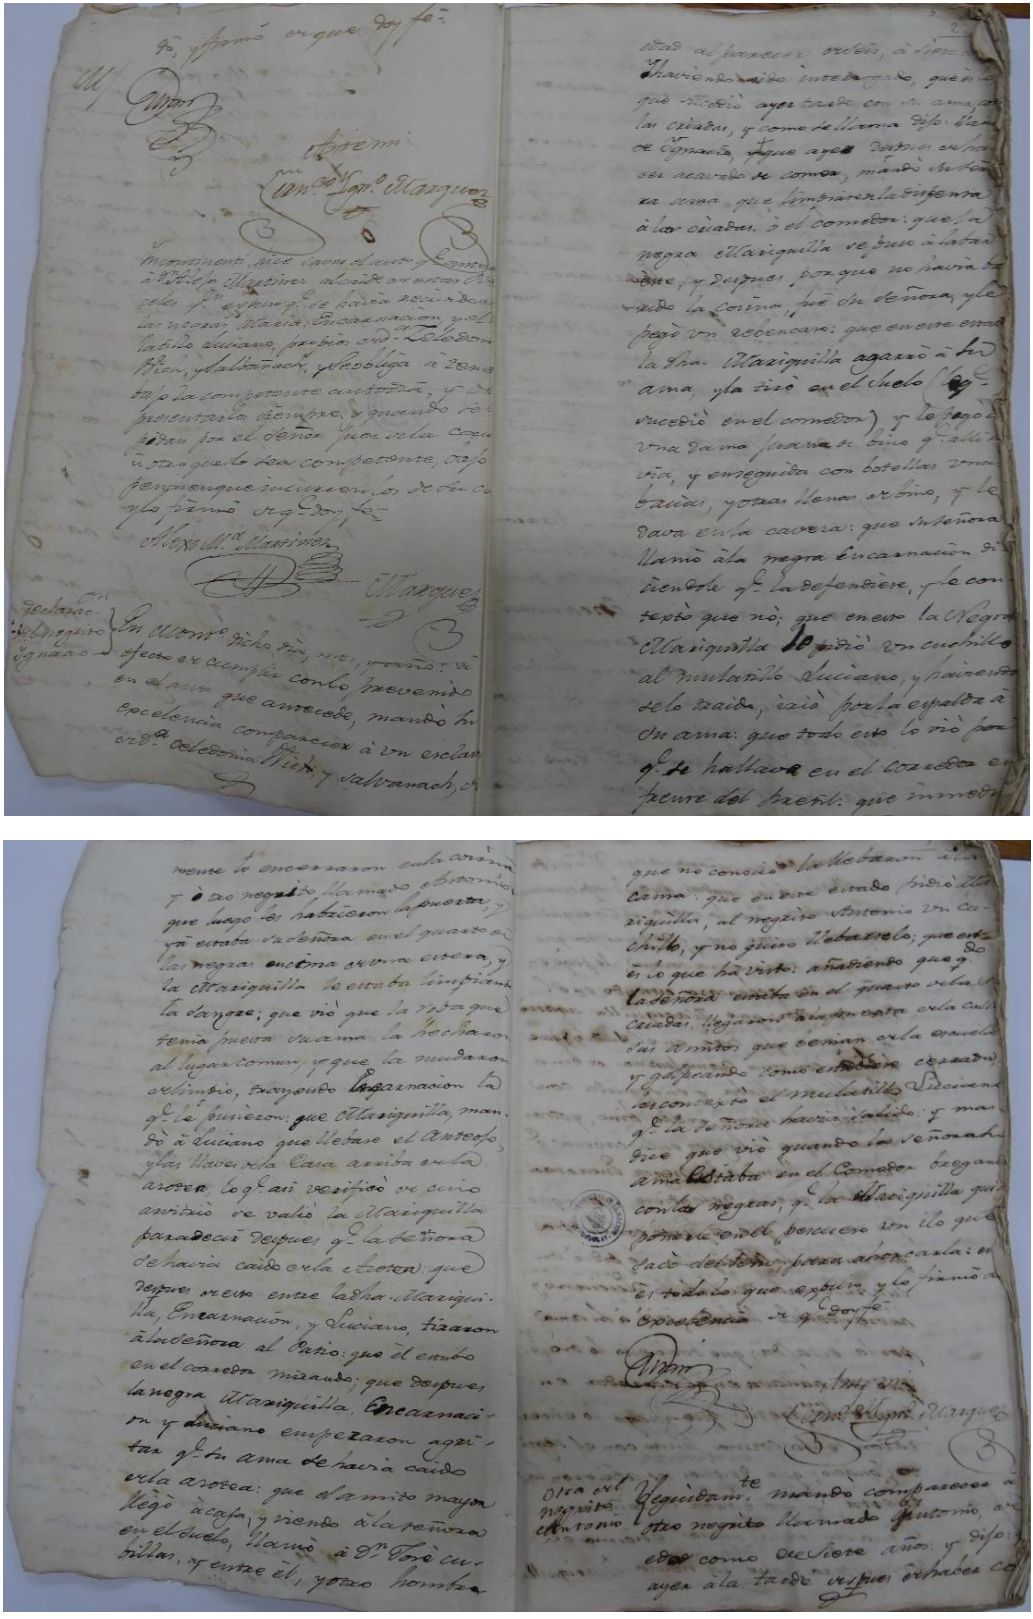 do, y firmó de que doy fe=
Antemi:
Marquez
Incontinenti, hice saver el auto qe. antecede
à Dn. Alexo Martinez alcaide de estas Car
celes qn. expuso qe. se havia recivido de
las negras, Maria, Encarnacion, y el
latillo Luciano, propios de Da. Celedon
Wich, y Salbañach, y se obliga à tener
bajo la competente custodia, y à
presentarlos siempre, y quando se
pidan por el Señor Juez de la causa
ù otro que lo sea competente, vajo
pena en que incurren los de su
y lo firmó de qe. doy fe=
Alexo Ma. Martinez
Marquez
Declaracon.
del negrito
Ygnacio
En Monto. dicho dia, mes, y año: à
efecto de cumplir con lo prevenido
en el auto que antecede, mandò Su
excelencia comparecer à un esclavo
de Da. Celedonia Wich y Salvanach, de
2
edad al parecer de seis, à siete
Y haviendo sido interrogado, que es lo
que sucediò ayer tarde con su ama, con
las criadas, y como se llama dijo: llamar
se Ygnacio, y que ayer despues de ha
ver acavado de comer, mandò su Seño
ra ama, que limpiaren la dispensa
à las criadas, ò el comedor: que la
negra Mariquilla se puso à labar
, y despues por que no havia ba
rrido la cocina, fuè su Señora, y le
pegò un rebencaso: que en este estado
la dha. Mariquilla agarrò à su
ama, y la tirò en el suelo (lo qe.
sucediò en el comedor) y le pegò con
una dama juana de bino qe. alli ha
via, y enseguida con botellas unas
bacias, y otras llenas de bino, y le
dava en la cavesa: que su señora
llamò à la negra Encarnacion di
ciendole qe. la defendiese, y le con
textò que nò; que en esto la Negra
Mariquilla le pidiò un cuchillo
al mulatillo Luciano, y haviendo
selo traido, iriò por la espalda à
su ama: que todo esto lo viò por
qe. se hallava en el corredor en
frente del pretil: que inmedia
mente lo encerraron en la cocina
y à otro negrito llamado Antonio
que luego les habrieron la puerta, y
yà estaba su Señora en el quarto de
las negras encima de una estera, y
la Mariquilla le estaba limpiando
la sangre; que viò que la ropa que
tenia puesta su ama la hecharon
al lugar comun, y que la mudaron
de limpio, trayendo Encarnacion la
qe. le pusieron: que Mariquilla, man-
dò à Luciano que llebase el Anteojo,
y las llaves de la Casa arriba de la
asotea, lo qe. asi verificò de cuio
arvitrio se valiò la Mariquilla
para decir despues qe. la Señora
se havia caido de la Asotea: que
despues de esto entre la dha. Mariqui-
lla, Encarnacion, y Luciano, tiraron
à la señora al Patio: que èl estubo
en el corredor mirando; que despues
la negra Mariquilla, Encarnaci-
on y Luciano empezaron à gri-
tar qe. su ama se havia caido
de la asotea: que el amito mayor
llegò à casa, y viendo à la señora
en el suelo, llamò à Dn. Josè cu-
billas, y entre èl, y otro hombre
que no conociò la llebaron à la
cama: que en este estado pidiò Ma
riquilla, al negrito Antonio un cu-
chillo, y no quiso llebarselo; que esto
es lo que hà visto: añadiendo que qdo.
la Señora estaba en el quarto de las
criadas, llegaron à la puerta de la calle
sus amitos que benian de la escuela
y golpeando como estubiese cerrada,
les contextò el mulatillo Luciano
qe. la Señora havia salido: y mas
dice que viò quando la señora su
ama estaba en el Comedor bregando
con las negras, qe. la Mariquilla quiso
ponerle en el pescueso un ilo que
sacò del seno, para ahorcarla: que
es todo lo que expuso, y lo firmò su
excelencia de qe. doy fe=
Marquez
Otra del
negrito
Antonio
Seguidamte. mandò comparecer à
otro negrito llamado Antonio, de
edad como de Siete años y dijo:
ayer à la tarde despues de haber co